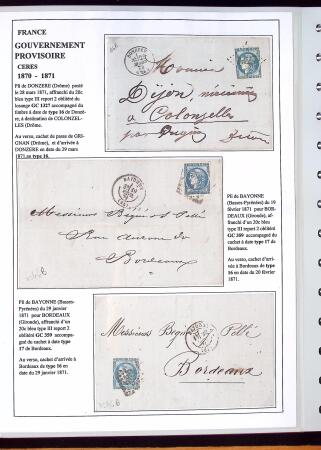 FRANCE
GOUVERNEMENT
PROVISOIRE
CERES
1870 - 1871
Pli de DONZERE (Drôme) posté
le 28 mars 1871, affranchi du 20c
bleu type III report 2 oblitéré du
losange GC 1327 accompagné du
cachet à date de type 16 de Donzè-
re, à destination de COLONZEL-
LES (Drôme.
Au verso, cachet de passe de GRI-
GNAN (Drôme), et d'arrivée à
DONZERE en date du 29 mars
1871 en type 16.
Monsieur
Dijon,
à Colonzelles
par
Pli de BAYONNE (Basses-
Pyrénées) du 19
février 1871 pour BOR-
DEAUX (Gironde), af-
franchi d'un 20c bleu
type III report 2 oblitéré
GC 359 accompagné du
cachet à date type 17 de
Bordeaux.
Au verso, cachet d'arrivée
à Bordeaux de type
16 en date du 20 février
1871.
BAYONNE
Messieurs
Bordeaux
Pli de BAYONNE (Basses-
Pyrénées) du 29 janvier
1871 pour BORDEAUX
(Gironde), affranchi d'un
20c bleu type III report 2
oblitéré GC 359 accompa-
gné du cachet à date type
17 de Bordeaux.
Au verso, cachet d'arrivée à
Bordeaux de type 16 en
date du 29 janvier 1871.
Messieurs
Bordeaux